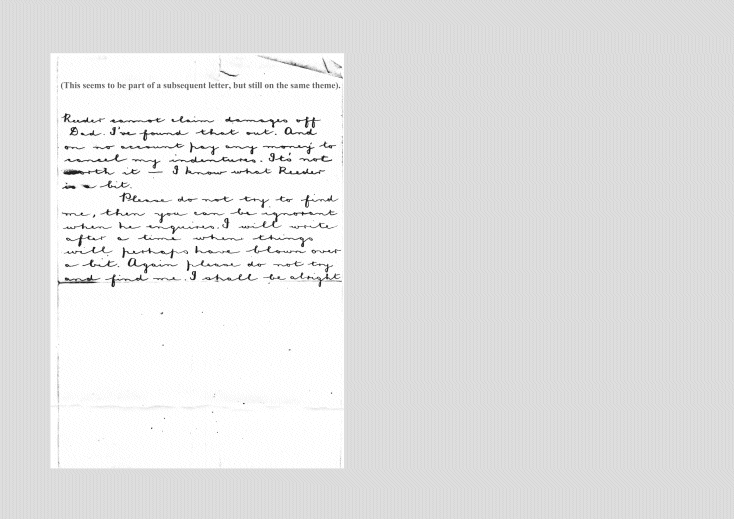 (This seems to be part of a subsequent letter, but still on the same theme).
Reeder cannot claim damages off
Dad. I've found that out. And
on no account pay any money to
cancel my indentures. It's not
worth it — I know what Reeder
is a bit.
Please do not try to find
me, then you can be ignorant
when he enquires. I will write
after a time when things
will perhaps have blown over
a bit. Again please do not try
and find me. I shall be alright